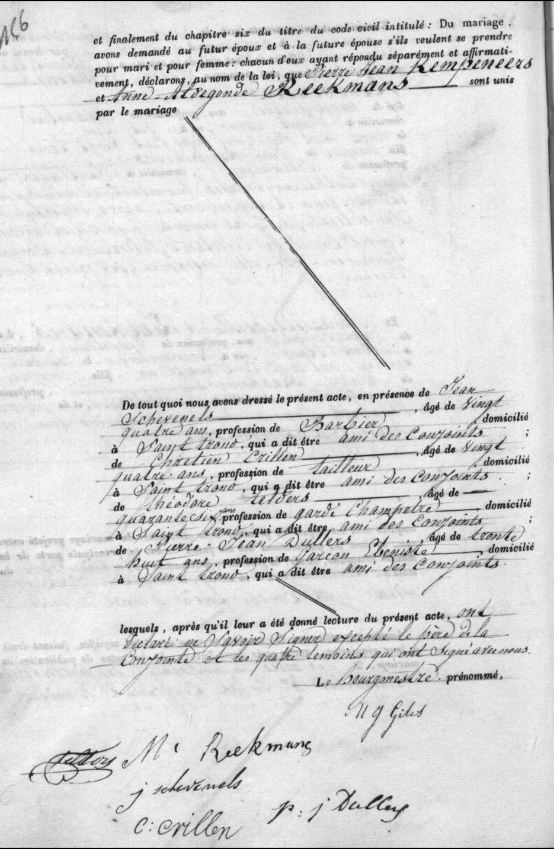 et finalement du chapitre six du titre du code civil intitulé : Du mariage,
avons demandé au futur époux et à la future épouse s'ils veulent se prendre
pour mari et pour femme : chacun d'eux ayant répondu séparément et affirmati-
vement, déclarons, au nom de la loi, que Pierre Jean Kempeneers
et Anne Aldegonde Reekmans sont unis
par le mariage
De tout quoi nous avons dressé le présent acte, en présence de Jean
Schevenels, âgé de vingt
quatre ans, profession de Barbier, domicilié
à Saint trond, qui a dit être ami des Conjoints ;
de Chretien Crillen, âgé de vingt
quatre ans, profession de tailleur, domicilié
à Saint trond, qui a dit être ami des Conjoints ;
de théodore telders, âgé de
quarante six ans profession de garde Champetre, domicilié
à Saint trond, qui a dit être ami des Conjoints ;
de Pierre Jean Dullers, âgé de trente
huit ans, profession de garçon Ebeniste, domicilié
à Saint trond, qui a dit être ami des Conjoints.
lesquels, après qu'il leur a été donné lecture du présent acte, ont
declaré ne Savoir Signer excepté le père de la
Conjointe et les quatre temoins qui ont signé avec nous.
Le bourgmestre prénommé,
Giles
telders M Reekmans
j schevenels
c: crillen p: j Dullers